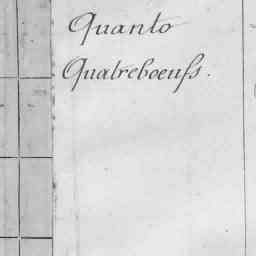 Quanto
Quatreboeufs.